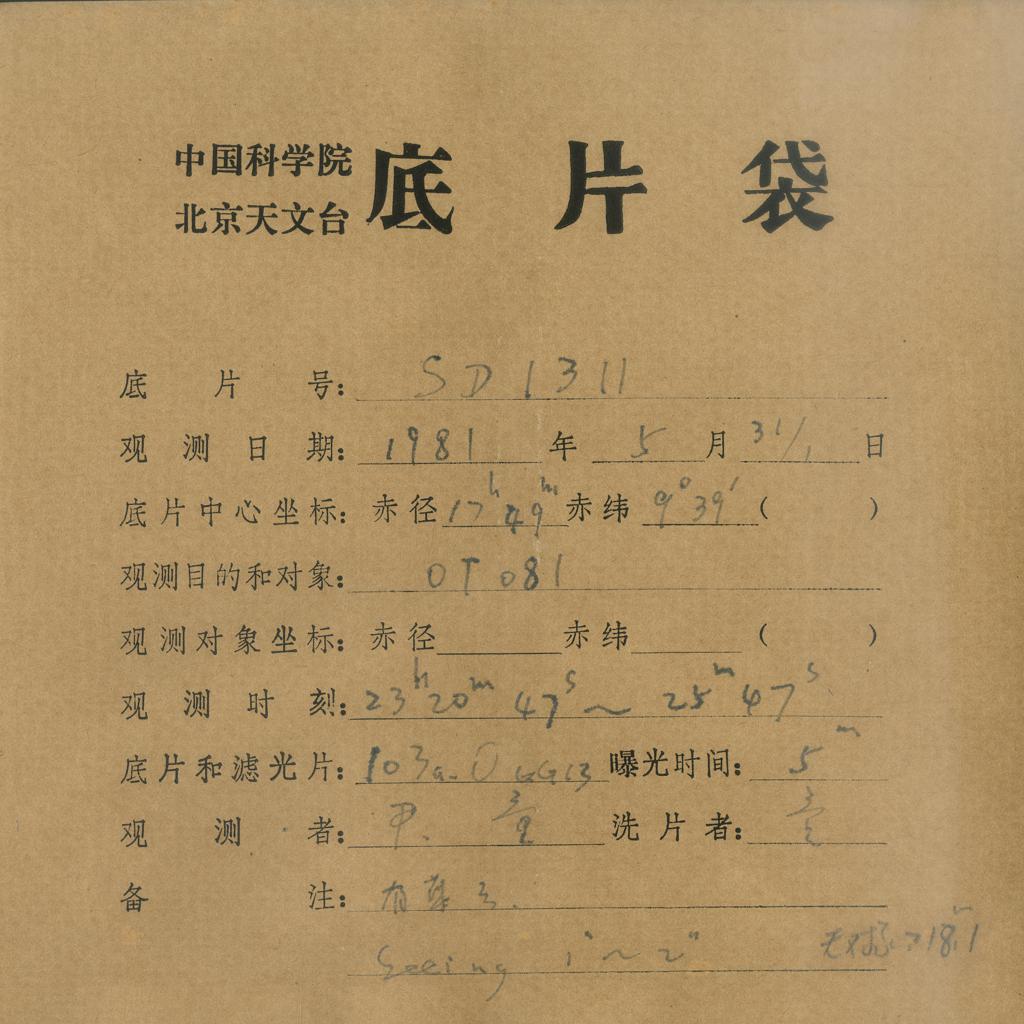 中国科学院
北京天文台
底片袋
底片号: SD1311
观测日期: 1981 年 5 月 31/1 日
底片中心坐标: 赤径 17h 49m 赤纬 9° 39′ ( )
观测目的和对象: OT 081
观测对象坐标: 赤径 赤纬 ( )
观测时刻: 23h 20m 47s ~ 25m 47s
底片和滤光片: 103a-O GG13 曝光时间: 5m
观测者: 尹. 童 洗片者: 童
备注: 有薄云.
Seeing 1″ ~ 2″
>18m.1